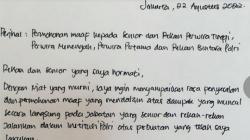 Jakarta, 22 Agustus 2022.
Perihal : Permohonan maaf kepada Senior dan Rekan Perwira Tinggi,
Perwira Menengah, Perwira Pertama dan Rekan Bintara Polri
Rekan dan Senior yang saya hormati,
Dengan niat yang murni, saya ingin menyampaikan rasa penyesalan
dan permohonan maaf yang mendalam atas dampak yang muncul
secara langsung pada jabatan yang senior dan rekan-rekan
jalankan dalam institusi Polri atas perbuatan yang telah saya